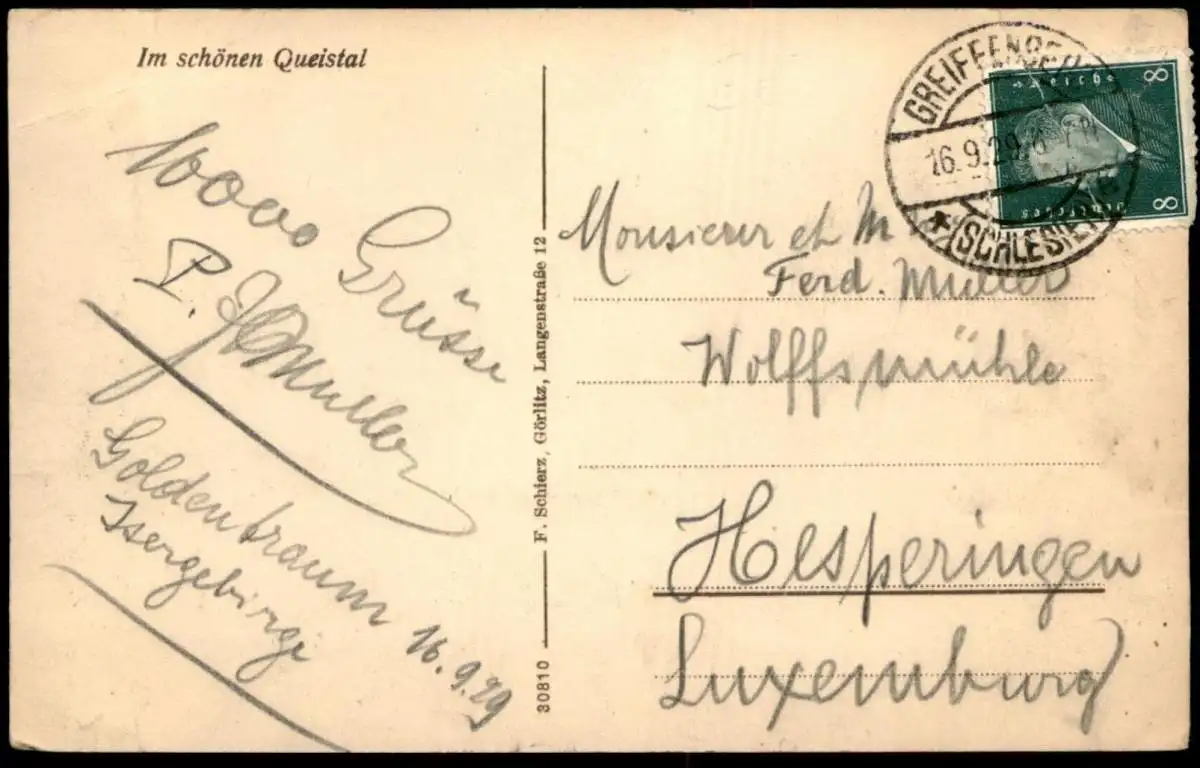 Im schönen Queistal
1000 Grüsse
P. J. Muller
Goldentraum
Isergebirge
16.9.29
30810 F. Schierz, Görlitz, Langenstraße 12
GREIFFENBERG
16.9.29
* (SCHLESIEN)
8
Deutsches
Reich
8
Monsieur et M
Ferd. Muller
Wolffsmühle
Hesperingen
Luxemburg